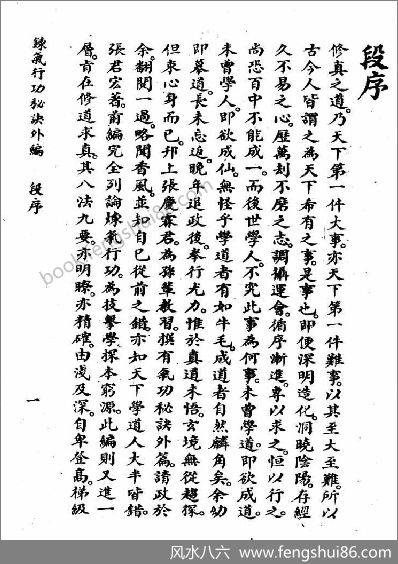 段序
修真之道。乃天下第一件大事。亦天下第一件難事。以其至大至難。所以
古今人皆謂之為天下希有之事。是事也。即便深明造化。洞曉陰陽。存經
久不易之心。歷萬刼不磨之志。調攝運會。循序漸進。專以求之。恒以行之。
尚恐百中不能成一。而後世學人。不究此事為何事。未曹學道。即欲成道。
未曹學人。即欲成仙。無怪乎學道者有如牛毛。成道者自然麟角矣。余幼
即慕道。長未忘返。晚年追政後。奉行尤力。惟於真道未悟。玄境無從超探。
但束心身而已。邗上張慶霖君。為孫輩教習。撰有氣功秘訣外篇。請政於
余。翻閱一過。略聞香風。並知自己從前之錯。亦知天下學道人大半皆錯。
張君宏著。前編完全列論煉氣行功。為技擊學探本窮源。此編則又進一
層。旨在修道求真。其八法九要。亦明瞭。亦精確。由淺及深。自卑登高。梯級
錬氣行功秘訣外編 段序 一
book.fengshui86.com
风水八六 www.fengshui86.com